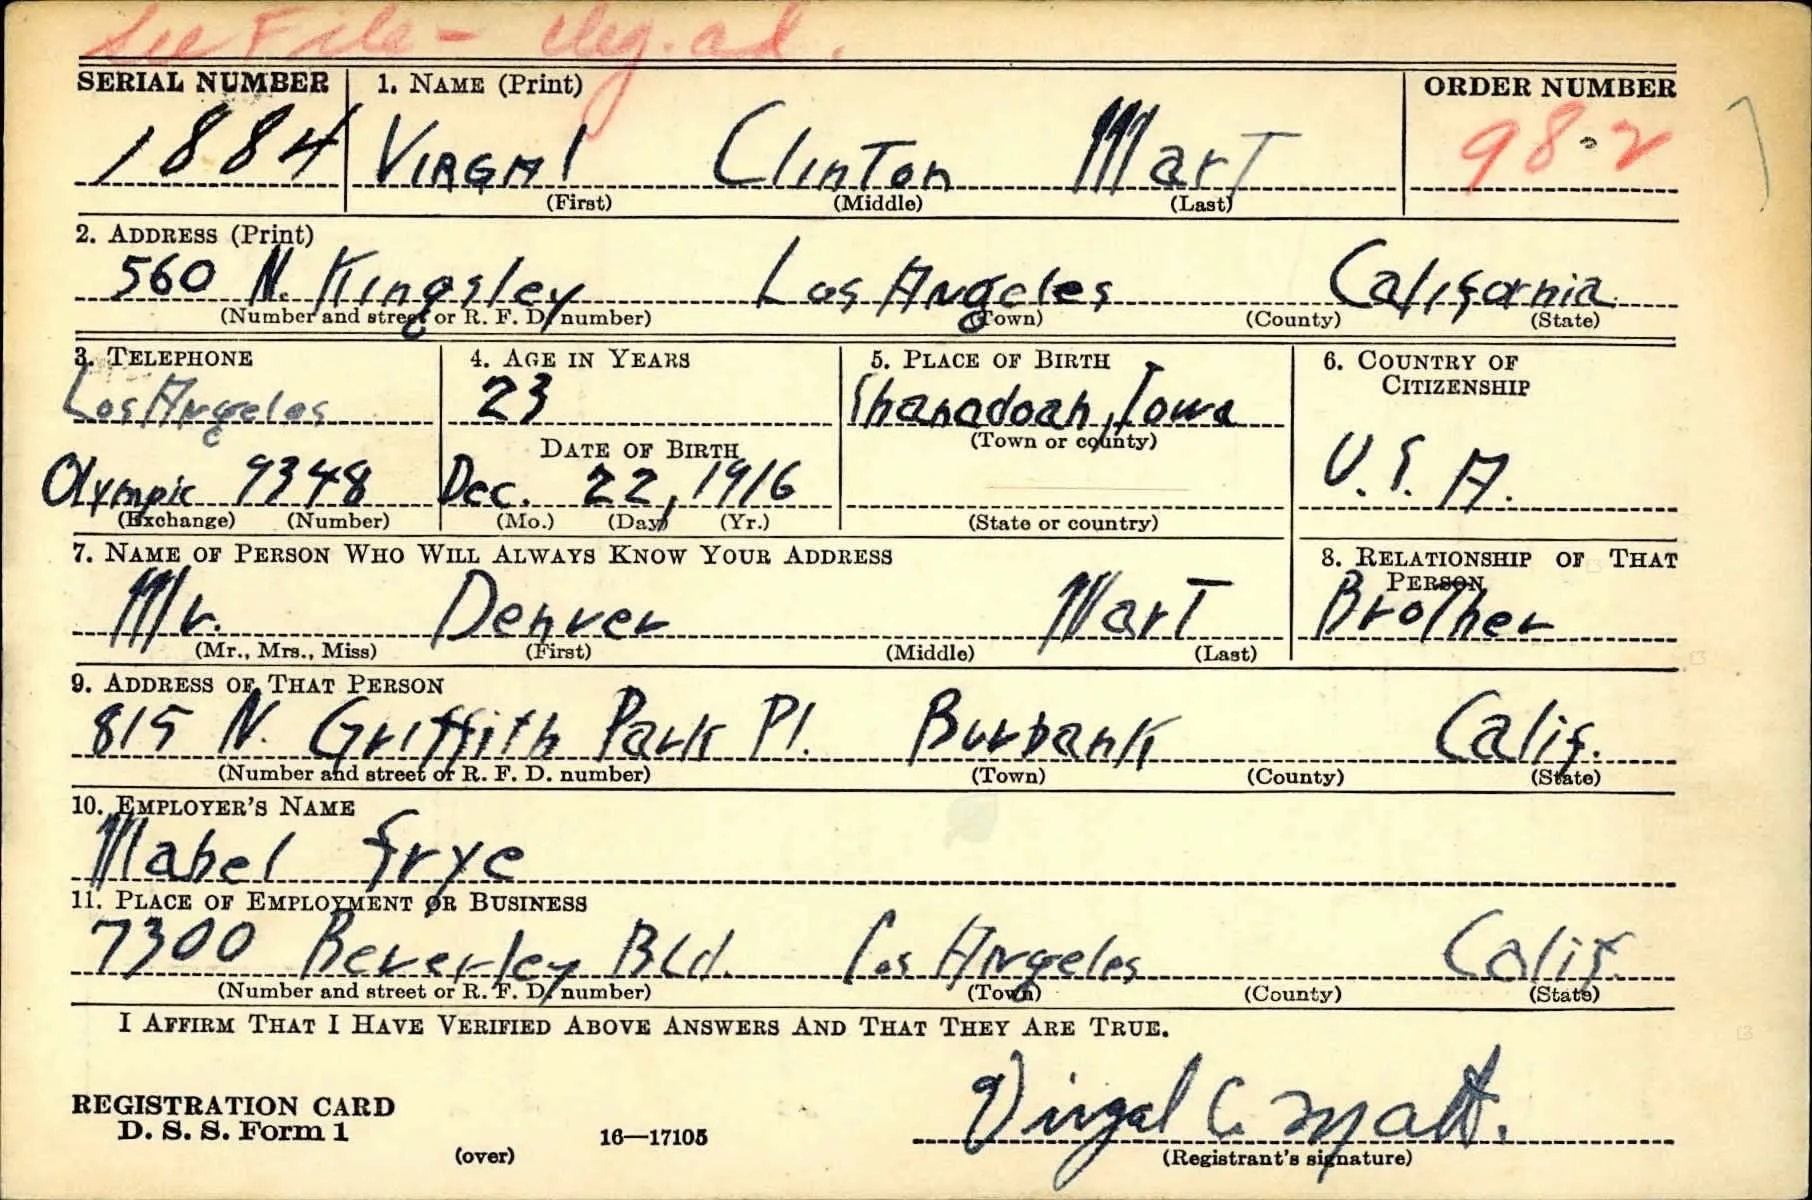 See File -
SERIAL NUMBER 1. NAME (Print) ORDER NUMBER
1884 VIRGAl ClinTon MarT 98-2
(First) (Middle) (Last)
2. ADDRESS (Print)
560 N. Kingsley Los Angeles California
(Number and street or R. F. D. number) (Town) (County) (State)
3. TELEPHONE 4. AGE IN YEARS 5. PLACE OF BIRTH 6. COUNTRY OF CITIZENSHIP
Los Angeles 23 Shanadoah, Iowa
DATE OF BIRTH (Town or county)
Olympic 9348 Dec. 22, 1916 U.S.A.
(Exchange) (Number) (Mo.) (Day) (Yr.) (State or country)
7. NAME OF PERSON WHO WILL ALWAYS KNOW YOUR ADDRESS 8. RELATIONSHIP OF THAT PERSON
Mr. Denver MarT BroTher
(Mr., Mrs., Miss) (First) (Middle) (Last)
9. ADDRESS OF THAT PERSON
815 N. Griffith Park Pl. Burbank Calif.
(Number and street or R. F. D. number) (Town) (County) (State)
10. EMPLOYER'S NAME
Mabel Frye
11. PLACE OF EMPLOYMENT OR BUSINESS
7300 Beverley Bld. Los Angeles Calif.
(Number and street or R. F. D. number) (Town) (County) (State)
I AFFIRM THAT I HAVE VERIFIED ABOVE ANSWERS AND THAT THEY ARE TRUE.
Virgal C. Matt.
REGISTRATION CARD
D. S. S. Form 1
(over) 16—17105 (Registrant's signature)